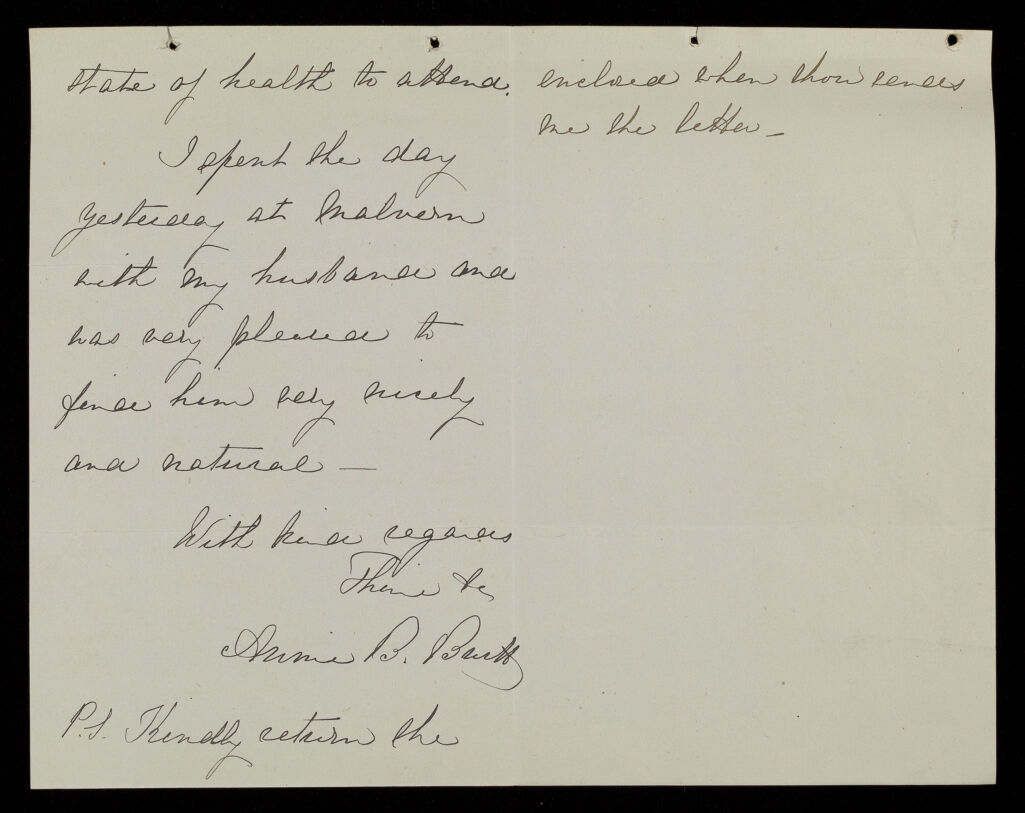 state of health to attend.
I spent the day
yesterday at Malvern
with my husband and
was very pleased to
find him very nicely
and natural —
With kind regards
Thine &c,
Annie B.
P.S. Kindly return the
enclosed when thou sends
me the letter —